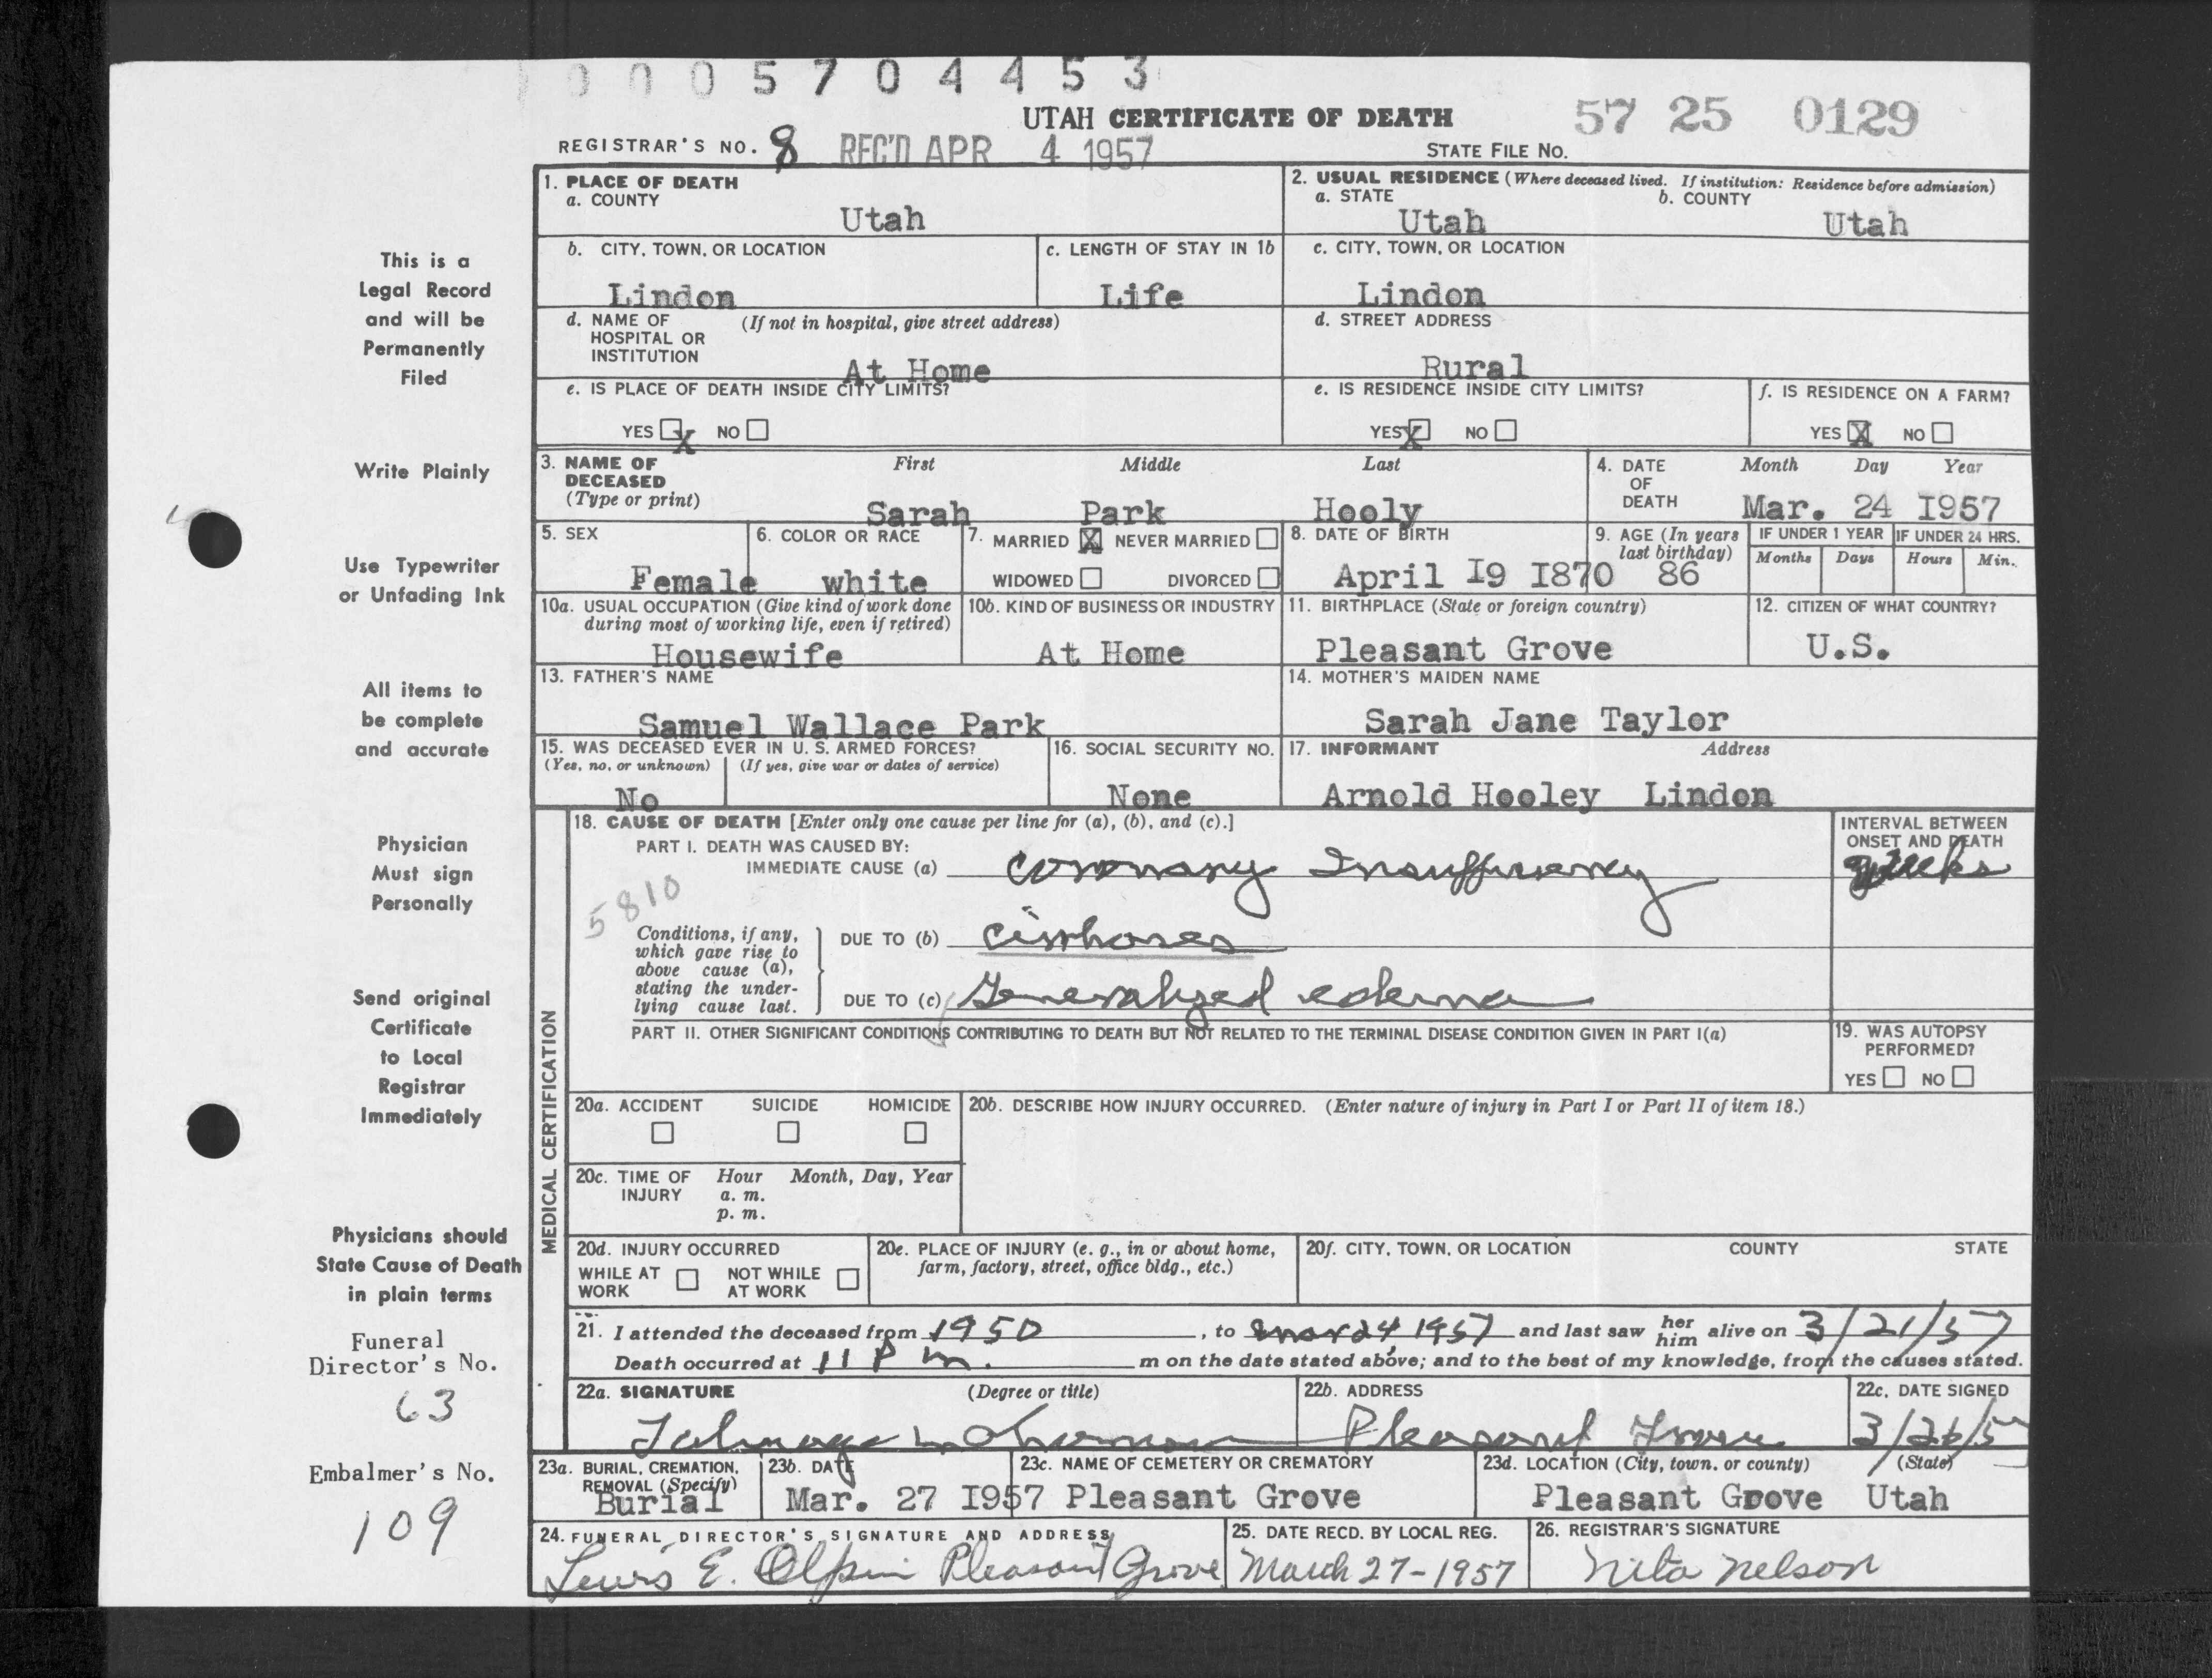 0 0 0 5 7 0 4 4 5 3
UTAH CERTIFICATE OF DEATH
57 25 0129
REGISTRAR'S NO. 8 REC'D APR 4 1957
STATE FILE NO.
1. PLACE OF DEATH
a. COUNTY
Utah
2. USUAL RESIDENCE (Where deceased lived. If institution: Residence before admission)
a. STATE b. COUNTY
Utah Utah
b. CITY, TOWN, OR LOCATION
Lindon
c. LENGTH OF STAY IN 1b
Life
c. CITY, TOWN, OR LOCATION
Lindon
d. NAME OF (If not in hospital, give street address)
HOSPITAL OR
INSTITUTION
At Home
d. STREET ADDRESS
Rural
e. IS PLACE OF DEATH INSIDE CITY LIMITS?
YES X NO
e. IS RESIDENCE INSIDE CITY LIMITS?
YES X NO
f. IS RESIDENCE ON A FARM?
YES X NO
3. NAME OF First Middle Last
DECEASED
(Type or print)
Sarah Park Hooly
4. DATE Month Day Year
OF
DEATH
Mar. 24 I957
5. SEX
Female
6. COLOR OR RACE
white
7. MARRIED X NEVER MARRIED
WIDOWED DIVORCED
8. DATE OF BIRTH
April I9 I870
9. AGE (In years
last birthday)
86
IF UNDER 1 YEAR
Months Days
IF UNDER 24 HRS.
Hours Min.
10a. USUAL OCCUPATION (Give kind of work done
during most of working life, even if retired)
Housewife
10b. KIND OF BUSINESS OR INDUSTRY
At Home
11. BIRTHPLACE (State or foreign country)
Pleasant Grove
12. CITIZEN OF WHAT COUNTRY?
U.S.
13. FATHER'S NAME
Samuel Wallace Park
14. MOTHER'S MAIDEN NAME
Sarah Jane Taylor
15. WAS DECEASED EVER IN U. S. ARMED FORCES?
(Yes, no, or unknown) (If yes, give war or dates of service)
No
16. SOCIAL SECURITY NO.
None
17. INFORMANT Address
Arnold Hooley Lindon
MEDICAL CERTIFICATION
18. CAUSE OF DEATH [Enter only one cause per line for (a), (b), and (c).]
PART I. DEATH WAS CAUSED BY:
IMMEDIATE CAUSE (a) Coronary Insufficiency
INTERVAL BETWEEN
ONSET AND DEATH
weeks
5810
Conditions, if any,
which gave rise to
above cause (a),
stating the under-
lying cause last.
DUE TO (b) cirrhoses
DUE TO (c) Generalized edema
PART II. OTHER SIGNIFICANT CONDITIONS CONTRIBUTING TO DEATH BUT NOT RELATED TO THE TERMINAL DISEASE CONDITION GIVEN IN PART I(a)
19. WAS AUTOPSY
PERFORMED?
YES NO
20a. ACCIDENT SUICIDE HOMICIDE
20b. DESCRIBE HOW INJURY OCCURRED. (Enter nature of injury in Part I or Part II of item 18.)
20c. TIME OF Hour Month, Day, Year
INJURY a. m.
p. m.
20d. INJURY OCCURRED
WHILE AT NOT WHILE
WORK AT WORK
20e. PLACE OF INJURY (e. g., in or about home,
farm, factory, street, office bldg., etc.)
20f. CITY, TOWN, OR LOCATION COUNTY STATE
21. I attended the deceased from 1950, to mar 24, 1957 and last saw her him alive on 3/21/57
Death occurred at 11 P m. m on the date stated above; and to the best of my knowledge, from the causes stated.
22a. SIGNATURE (Degree or title)
Talmage
22b. ADDRESS
Pleasant Grove
22c. DATE SIGNED
3/26/57
23a. BURIAL, CREMATION,
REMOVAL (Specify)
Burial
23b. DATE
Mar. 27 I957
23c. NAME OF CEMETERY OR CREMATORY
Pleasant Grove
23d. LOCATION (City, town, or county) (State)
Pleasant Grove Utah
24. FUNERAL DIRECTOR'S SIGNATURE AND ADDRESS
Lewis E. Olpin Pleasant Grove
25. DATE RECD. BY LOCAL REG.
March 27-1957
26. REGISTRAR'S SIGNATURE
Nita Nelson
This is a
Legal Record
and will be
Permanently
Filed
Write Plainly
Use Typewriter
or Unfading Ink
All items to
be complete
and accurate
Physician
Must sign
Personally
Send original
Certificate
to Local
Registrar
Immediately
Physicians should
State Cause of Death
in plain terms
Funeral
Director's No.
63
Embalmer's No.
109